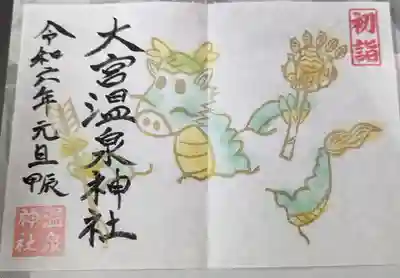 初詣
大宮温泉神社
令和六年 元旦 甲辰
温泉
神社